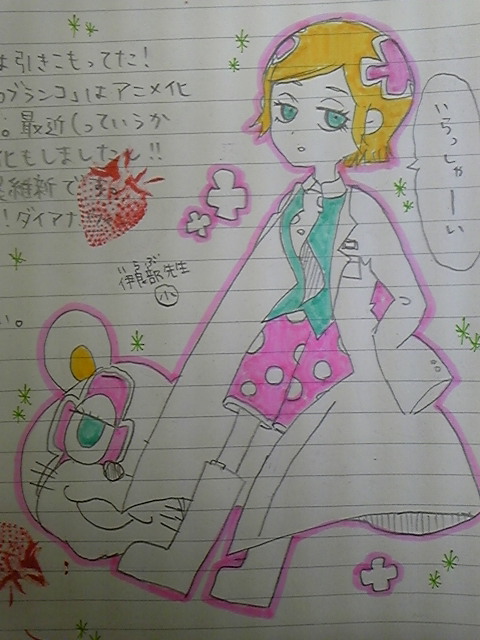 は引きこもってた!
のブランコ」はアニメ化
。最近(っていうか
化もしましたし!!
維新です。
!ダイアナ
い。
いらっしゃーい
いらぶ
伊良部先生
小